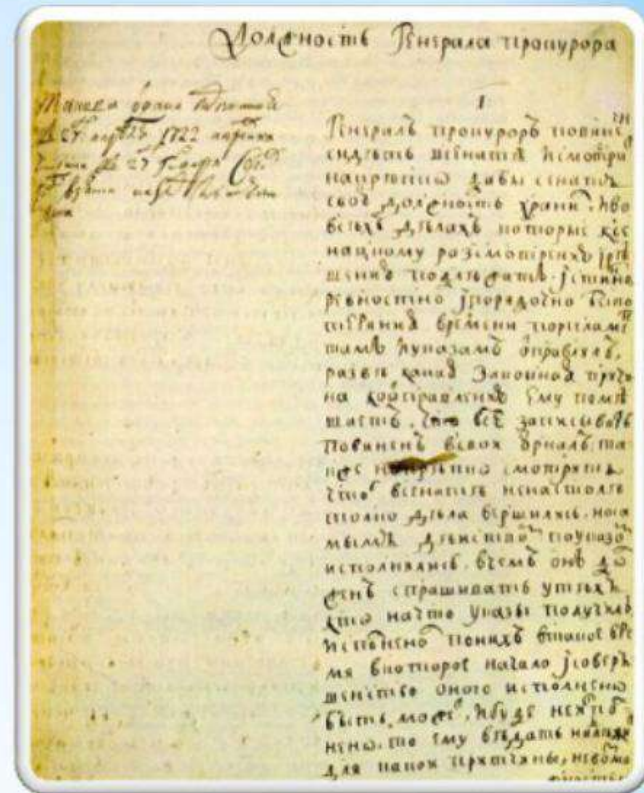 Должность Генерала прокурора
Такова отдана
27 апреля 1722
27
I
Генералъ прокуроръ повине
сидѣть всенатѣ исмотрит
накрѣпко дабы сенатъ
свою должность хранил. иво
всѣхъ дѣлахъ которые ксе
нацкому разсмотренію ірѣ
шению подлежатъ. істинно
ревностно іпорядочно беспо
теряния времени порегламе
тамъ iуказамъ отправлялъ,
развѣ какая законная причи
на коотправлению ему помѣ
шаетъ. что все записывать
повиненъ всвои юрналъ. та
кже накрѣпко смотрить
чтоб всенатѣ ненастолѣ
толко дѣла вершились. носа
мымъ дѣйствомъ поуказо
исполнялись. вчемъ онъ до
ленъ спрашивать утѣхъ
кто начто указы получилъ
исполнено понихъ втакое вре
мя вкоторое начало ісовер
шенство оного исполнено
быть може, ибуде неиспол
нено. то ему вѣдать надлеж
для какой притчины, невозмо